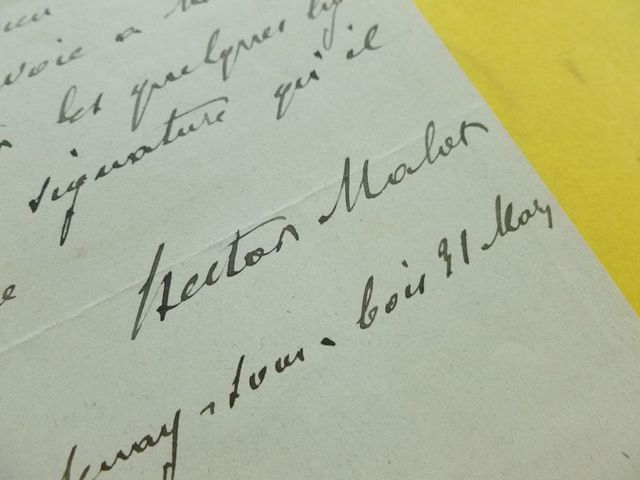 voie a
les quelques lig
signature qu'il
Hector Malot
enay-sous-bois 31 May